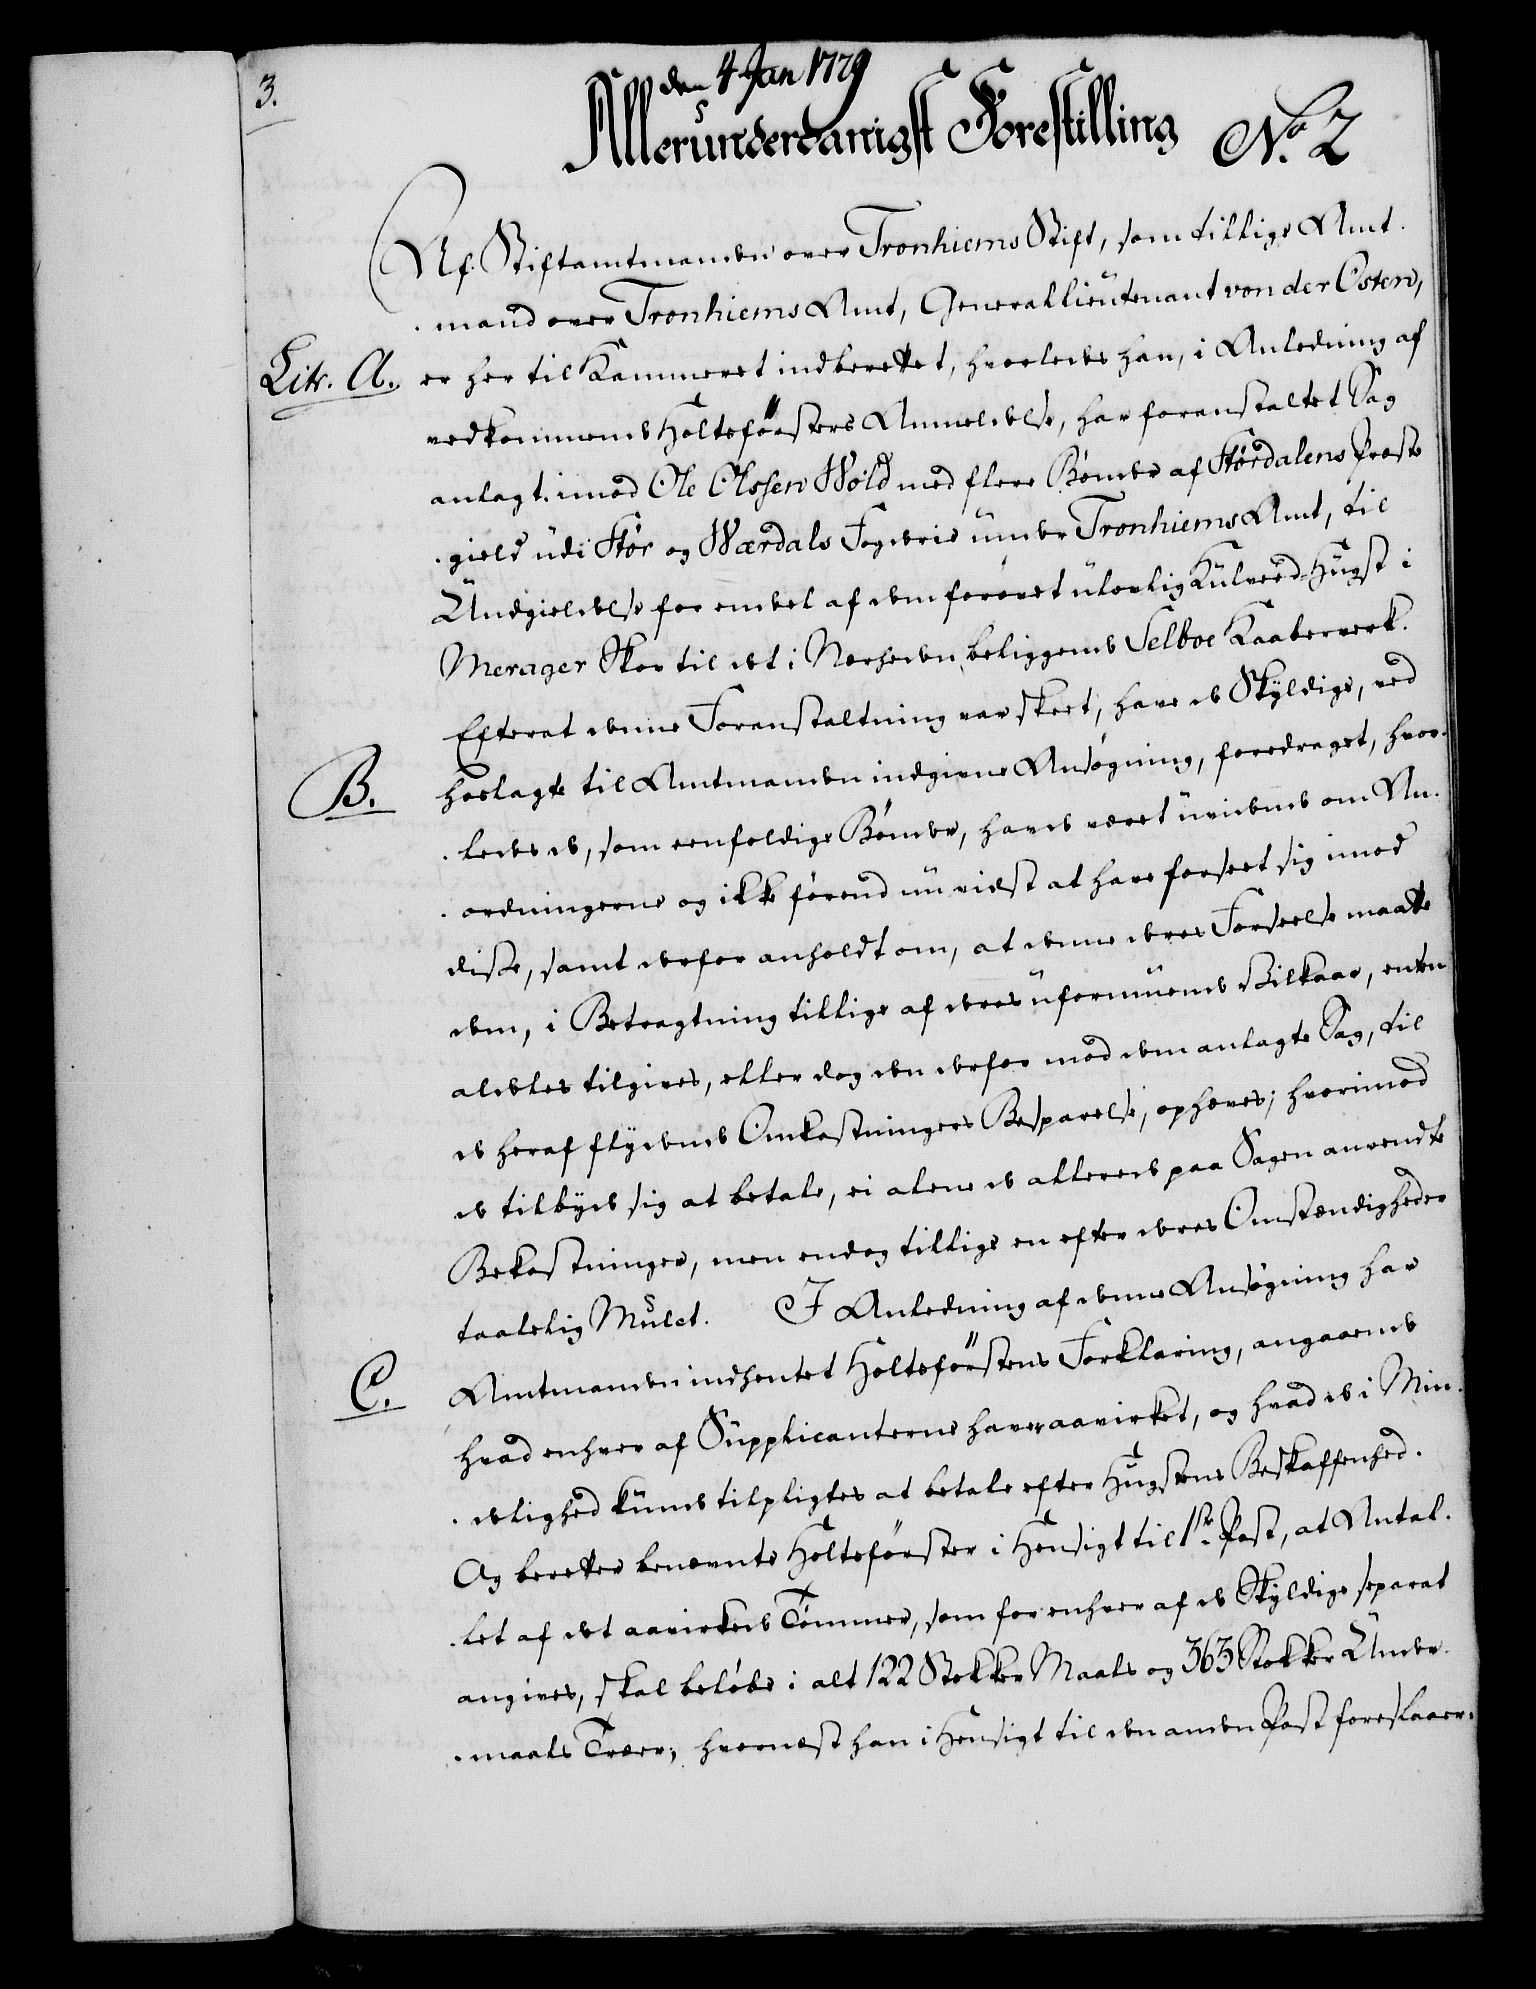 3.
den 4 Jan 1779
Allerunderdanigst Forestilling No. 2
Af Stiftamtmanden over Tronhiems Stift, som tillige Amt-
mand over Tronhiems Amt, Generallieutenant von der Osten,
Litr. A. er her til Kammeret indberettet, hvorledes han, i Anledning af
vedkommende Holtsførsters Anmeldelse, har foranstaltet Sag
anlagt imod Ole Olssen Wold med flere Bønder af Størdalens Præste-
gield udi Stør og Værdals Fogderie under Tronhiems Amt, til
Undgieldelse for endel af dem forøvet ulovlig Kulveed-Hugst i
Merager Skov til det i Nærheden beliggende Selboe Kaaberverk.
Efterat denne Foranstaltning var skeet, have de Skyldige, ved
B. hoslagte til Amtmanden indgivne Ansøgning, foredraget, hvor-
ledes de, som eenfoldige Bønder, havde været uvidende om An-
ordningerne og ikke førend nu vidst at have forseet sig imod
disse, samt derfor anholdt om, at denne deres Forseelse maatte
dem, i Betragtning tillige af deres uformuende Vilkaar, enten
aldeles tilgives, eller dog den derfor mod dem anlagte Sag, til
de heraf flydende Omkostningers Besparelse, ophæves; hvorimod
de tilbyde sig at betale, ei alene de allerede paa Sagen anvendte
Bekostninger, men endog tillige en efter deres Omstændigheder
taalelig Mulct. I Anledning af denne Ansøgning har
C. Amtmanden indhentet Holtsførstens Forklaring, angaaende
hvad enhver af Supplicanterne haver aavirket, og hvad de i Min-
delighed kunde tilpligtes at betale efter Hugstens Beskaffenhed.
Og beretter benævnte Holtsførster i Hensigt til 1ste Post, at Antal-
let af det aavirkede Tømmer, som for enhver af de Skyldige separat
angives, skal beløbe i alt 122 Stokker Maals og 363 Stokker Under-
maals Træer; hvornæst han i Hensigt til den anden Post foreslaaer,